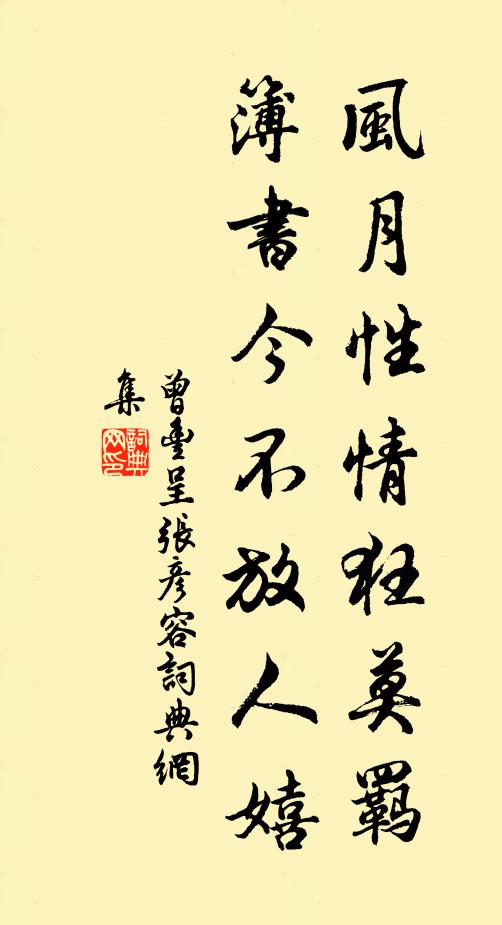 風月性情狂莫羈
簿書今不放人嬉
曾豐呈張彥容詞典網
集
詞典
网印